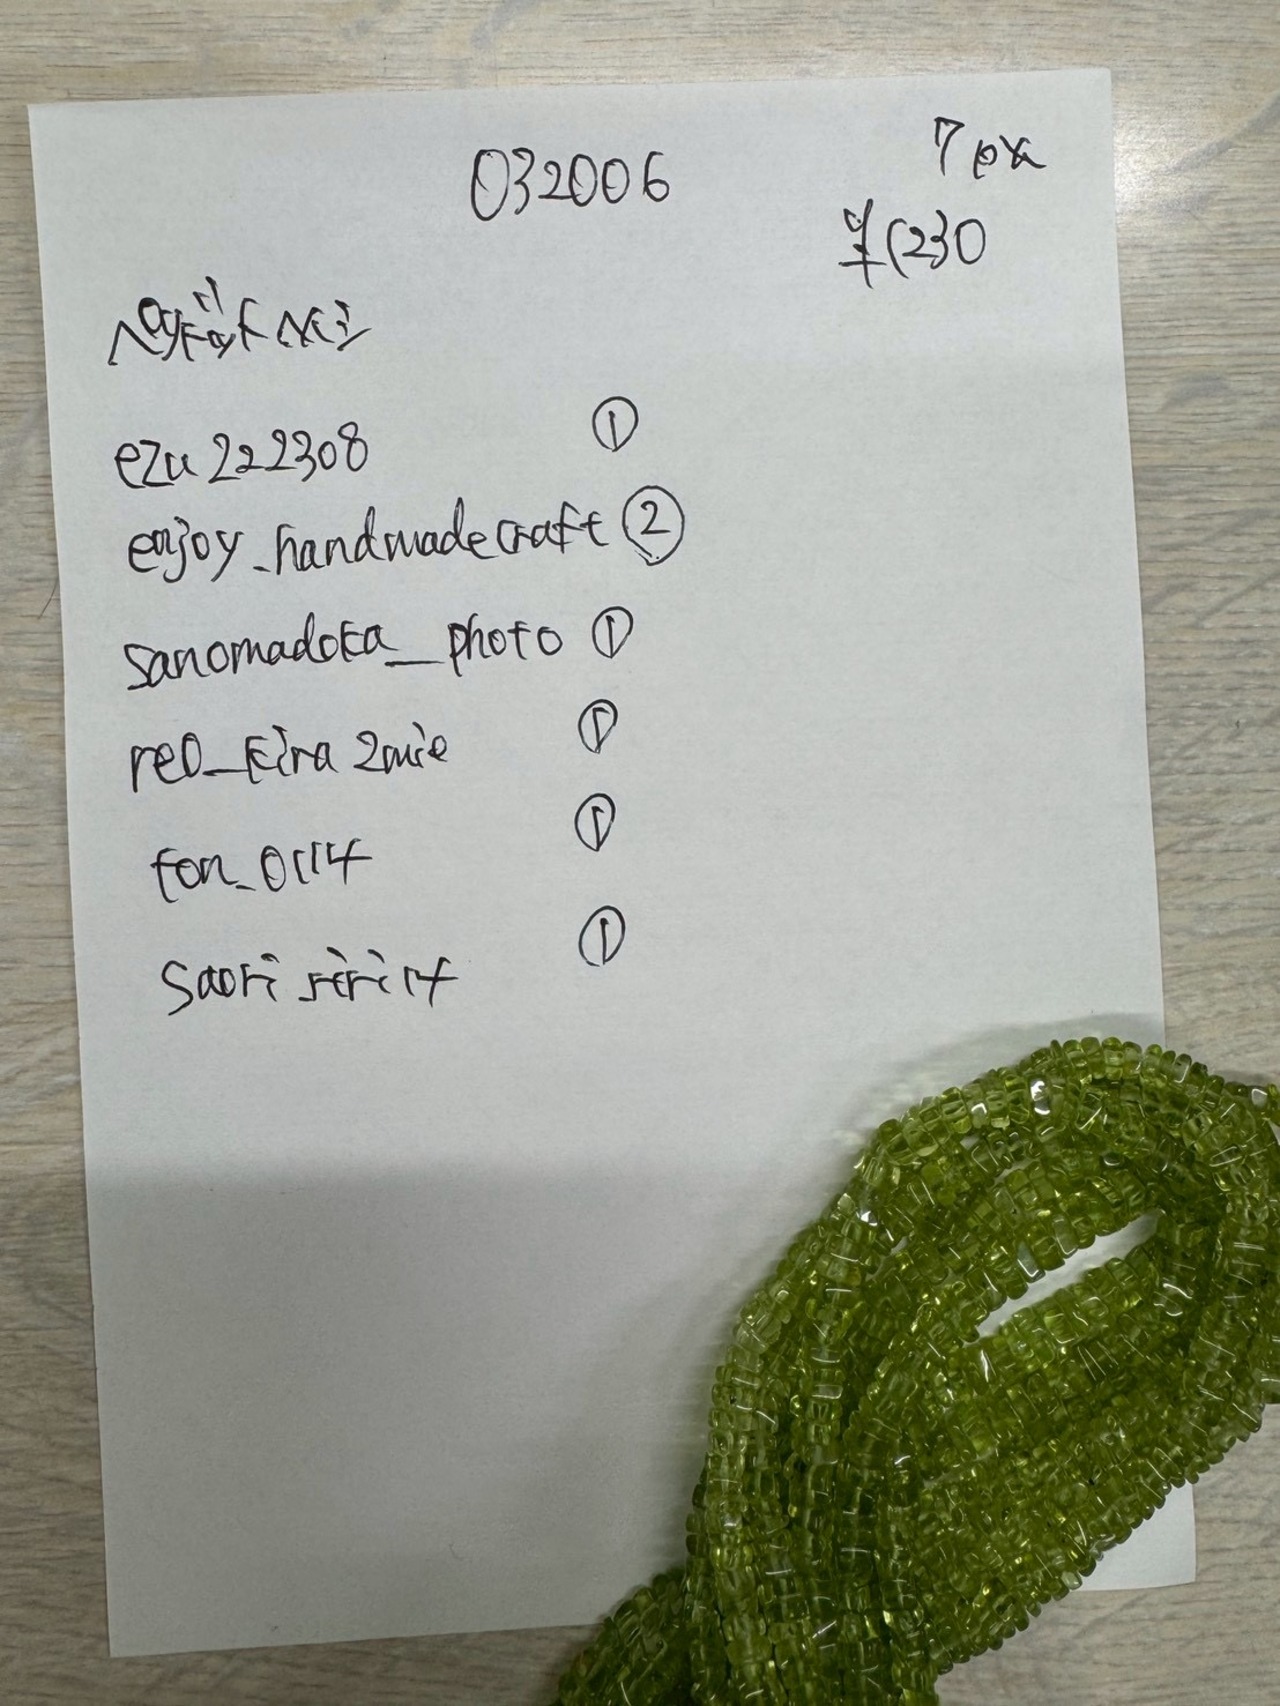 032006
7
¥1230
ezu222308 ①
enjoy_handmadecraft ②
sanomadoka_photo ①
reo_kira2mie ①
ton_0114 ①
saoririri14 ①